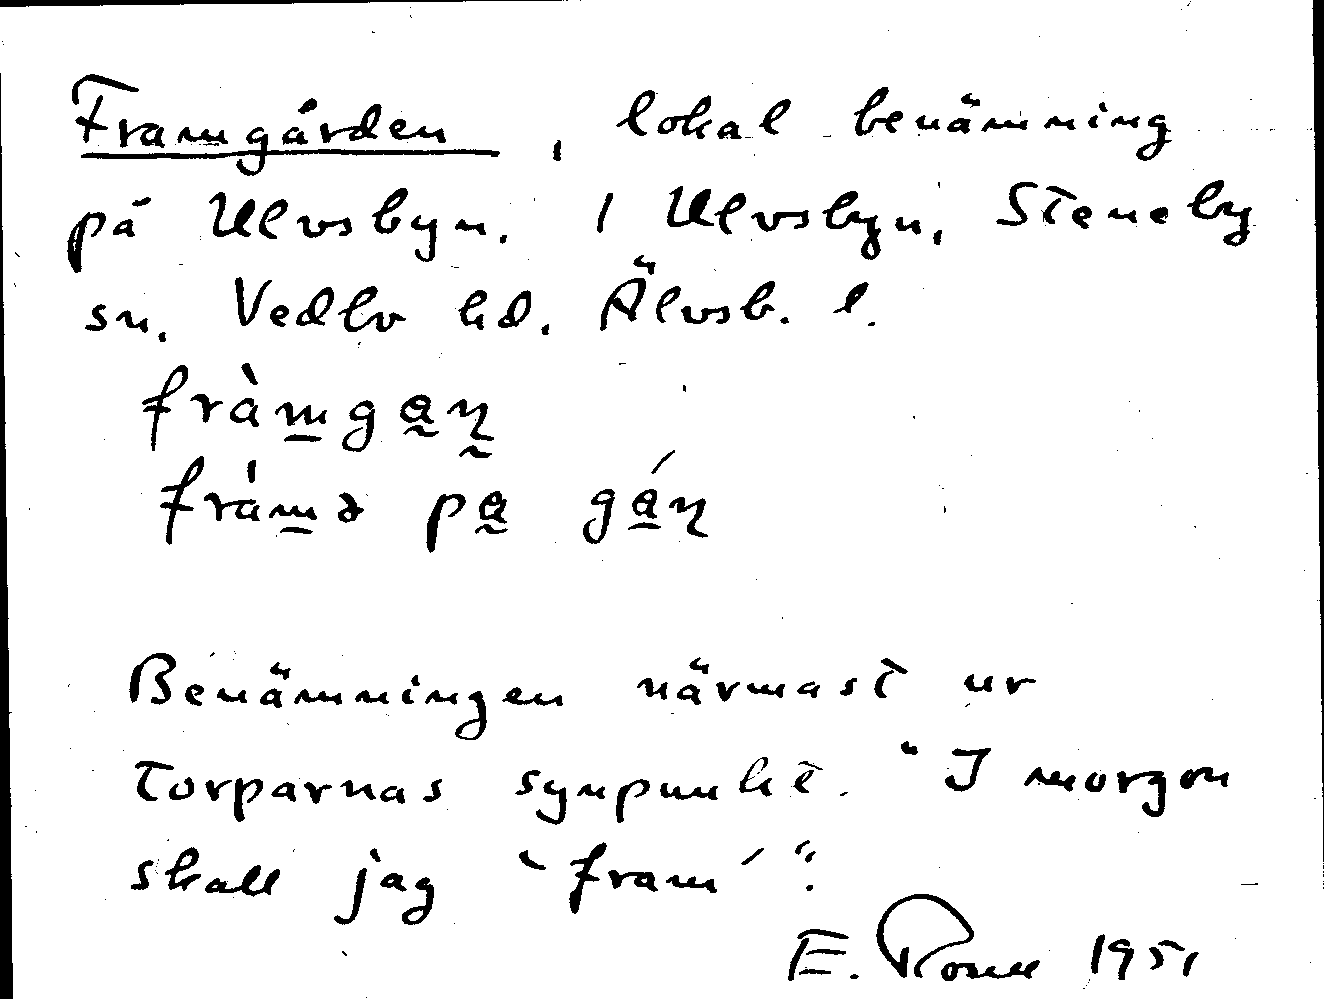 Framgården, lokal benämning
på Ulvsbyn. 1 Ulvsbyn, Steneby
sn. Vedbo hd. Älvsb. l.
fràm̲ga̰ɳ̰
fràm̲ə pa̰ gá̲ɳ
Benämningen närmast ur
torparnas synpunkt. "I morgon
skall jag `fram´".
E. 1951